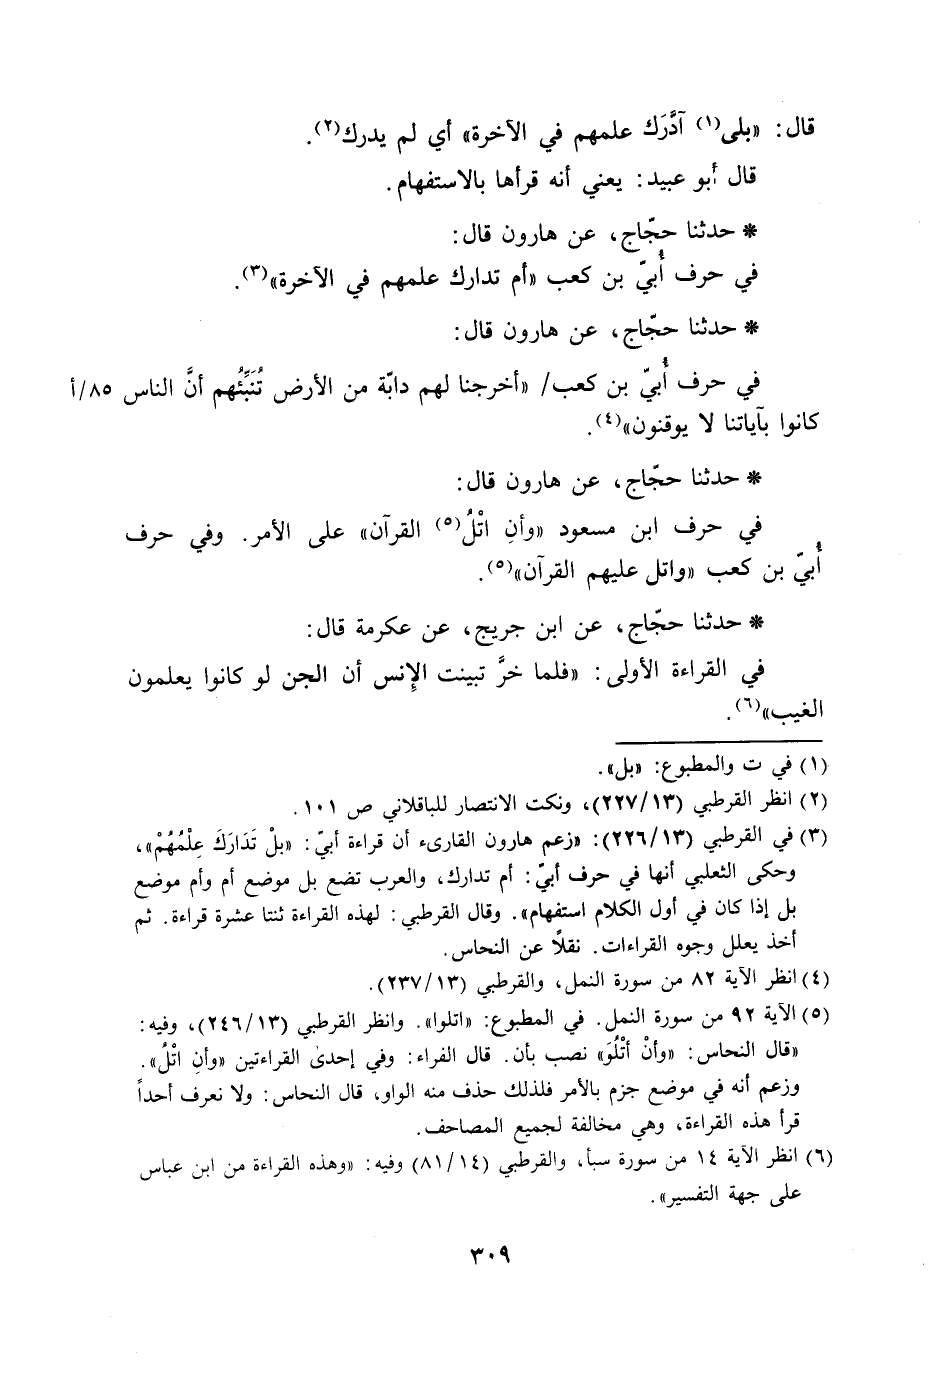 قال: «بلى(١) آدَّرَك علمهم في الآخرة» أي لم يدرك(٢).
قال أبو عبيد: يعني أنه قرأها بالاستفهام.
* حدثنا حجّاج، عن هارون قال:
في حرف أُبيّ بن كعب «أم تدارك علمهم في الآخرة»(٣).
* حدثنا حجّاج، عن هارون قال:
في حرف أُبيّ بن كعب/ «أخرجنا لهم دابّة من الأرض تُنَبِّئُهم أنَّ الناس ٨٥/أ
كانوا بآياتنا لا يوقنون»(٤).
* حدثنا حجّاج، عن هارون قال:
في حرف ابن مسعود «وأنِ اتْلُ(٥) القرآن» على الأمر. وفي حرف
أُبيّ بن كعب «واتل عليهم القرآن»(٥).
* حدثنا حجّاج، عن ابن جريج، عن عكرمة قال:
في القراءة الأولى: «فلما خرَّ تبينت الإنس أن الجن لو كانوا يعلمون
الغيب»(٦).
(١) في ت والمطبوع: «بل».
(٢) انظر القرطبي (٢٢٧/١٣)، ونكت الانتصار للباقلاني ص ١٠١.
(٣) في القرطبي (٢٢٦/١٣): «زعم هارون القارىء أن قراءة أبيّ: «بلْ تَدَارَكَ عِلْمُهُمْ»،
وحكى الثعلبي أنها في حرف أبيّ: أم تدارك، والعرب تضع بل موضع أم وأم موضع
بل إذا كان في أول الكلام استفهام». وقال القرطبي: لهذه القراءة ثنتا عشرة قراءة. ثم
أخذ يعلل وجوه القراءات. نقلًا عن النحاس.
(٤) انظر الآية ٨٢ من سورة النمل، والقرطبي (٢٣٧/١٣).
(٥) الآية ٩٢ من سورة النمل. في المطبوع: «اتلوا». وانظر القرطبي (٢٤٦/١٣)، وفيه:
«قال النحاس: «وأنْ أتْلُوَ» نصب بأن. قال الفراء: وفي إحدىٰ القراءتين «وأنِ اتْلُ».
وزعم أنه في موضع جزم بالأمر فلذلك حذف منه الواو، قال النحاس: ولا نعرف أحداً
قرأ هذه القراءة، وهي مخالفة لجميع المصاحف.
(٦) انظر الآية ١٤ من سورة سبأ، والقرطبي (٨١/١٤) وفيه: «وهذه القراءة من ابن عباس
على جهة التفسير».
٣٠٩